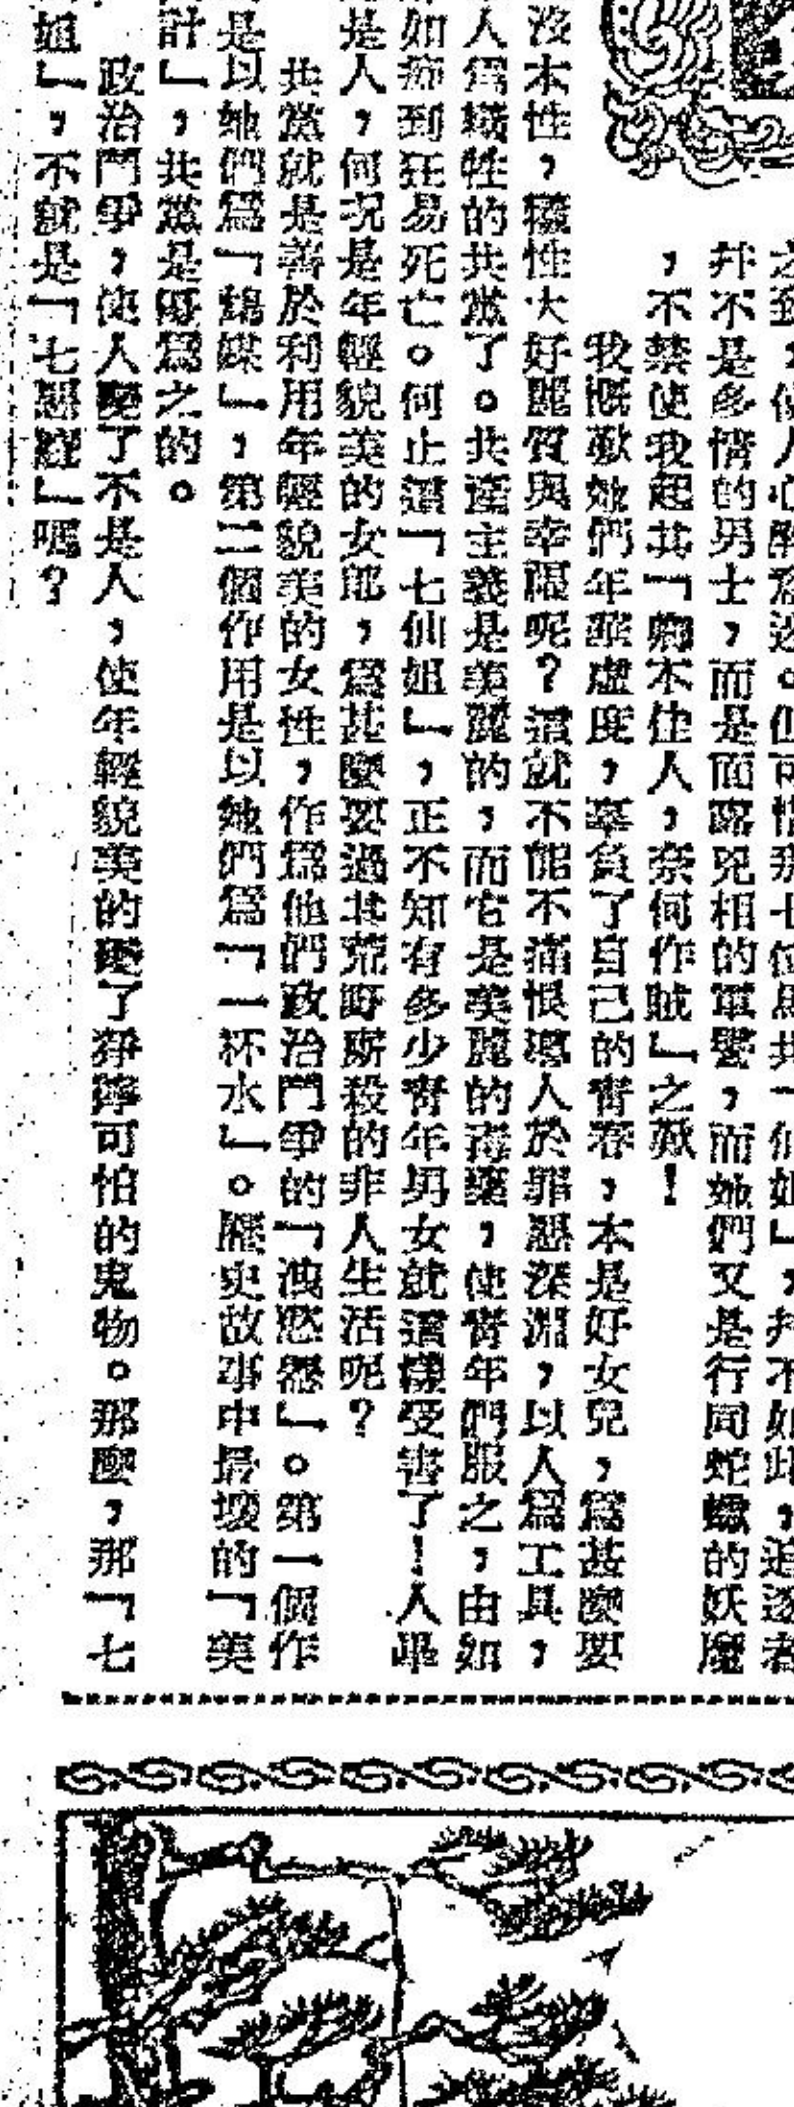 之到，使人心醉意迷。但可惜那七位馬共「仙姐」，幷不如此，追逐者
幷不是多情的男士，而是面露兇相的軍警，而她們又是行同蛇蠍的妖魔
，不禁使我起共「卿本佳人，奈何作賊」之歎！
我慨歎她們年華虛度，辜負了自己的青春，本是好女兒，爲甚麼要
沒本性，犧牲大好麗質與幸福呢？這就不能不痛恨導人於罪惡深淵，以人爲工具，
人爲犧牲的共黨了。共產主義是美麗的，而它是美麗的毒藥，使青年們服之，由如
如痲到狂易死亡。何止這「七仙姐」，正不知有多少青年男女就這樣受害了！人畢
是人，何況是年輕貌美的女郎，爲甚麼要過其荒野廝殺的非人生活呢？
共黨就是善於利用年輕貌美的女性，作爲他們政治鬥爭的「洩慾器」。第一個作
是以她們爲「鴇媒」，第二個作用是以她們爲「一杯水」。歷史故事中最壞的「美
計」，共黨是優爲之的。
政治鬥爭，使人變了不是人，使年輕貌美的變了猙獰可怕的鬼物。那麼，那「七
姐」，不就是「七惡姬」嗎？